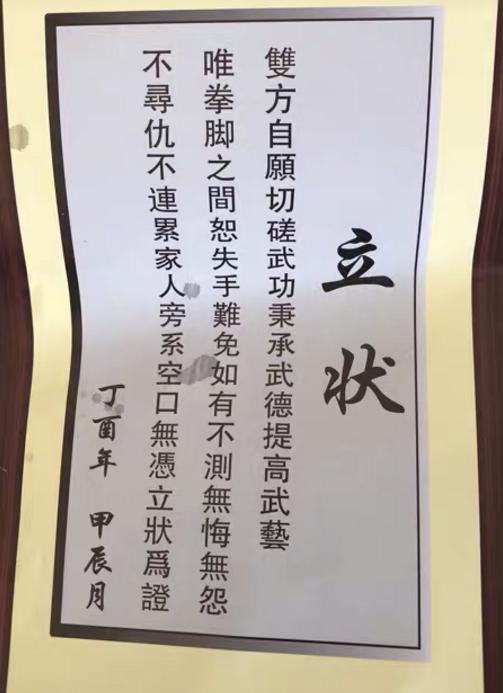 立状
雙方自願切磋武功秉承武德提高武藝
唯拳脚之間恕失手難免如有不測無悔無怨
不尋仇不連累家人旁系空口無憑立狀爲證
丁酉年 甲辰月